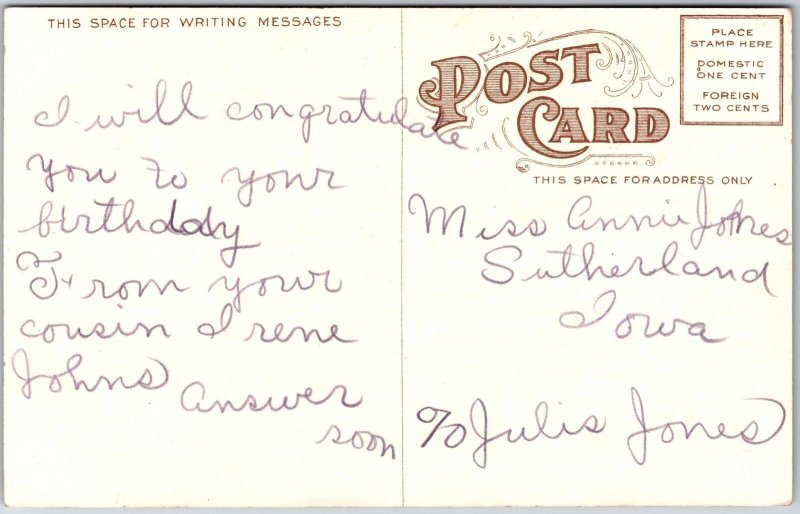 THIS SPACE FOR WRITING MESSAGES
I will congratulate
you to your
birthday
From your
cousin Irene
Johns
Answer
soon
POST
CARD
THIS SPACE FOR ADDRESS ONLY
PLACE
STAMP HERE
DOMESTIC
ONE CENT
FOREIGN
TWO CENTS
Miss Annie Johnes
Sutherland
Iowa
% Julis Jones